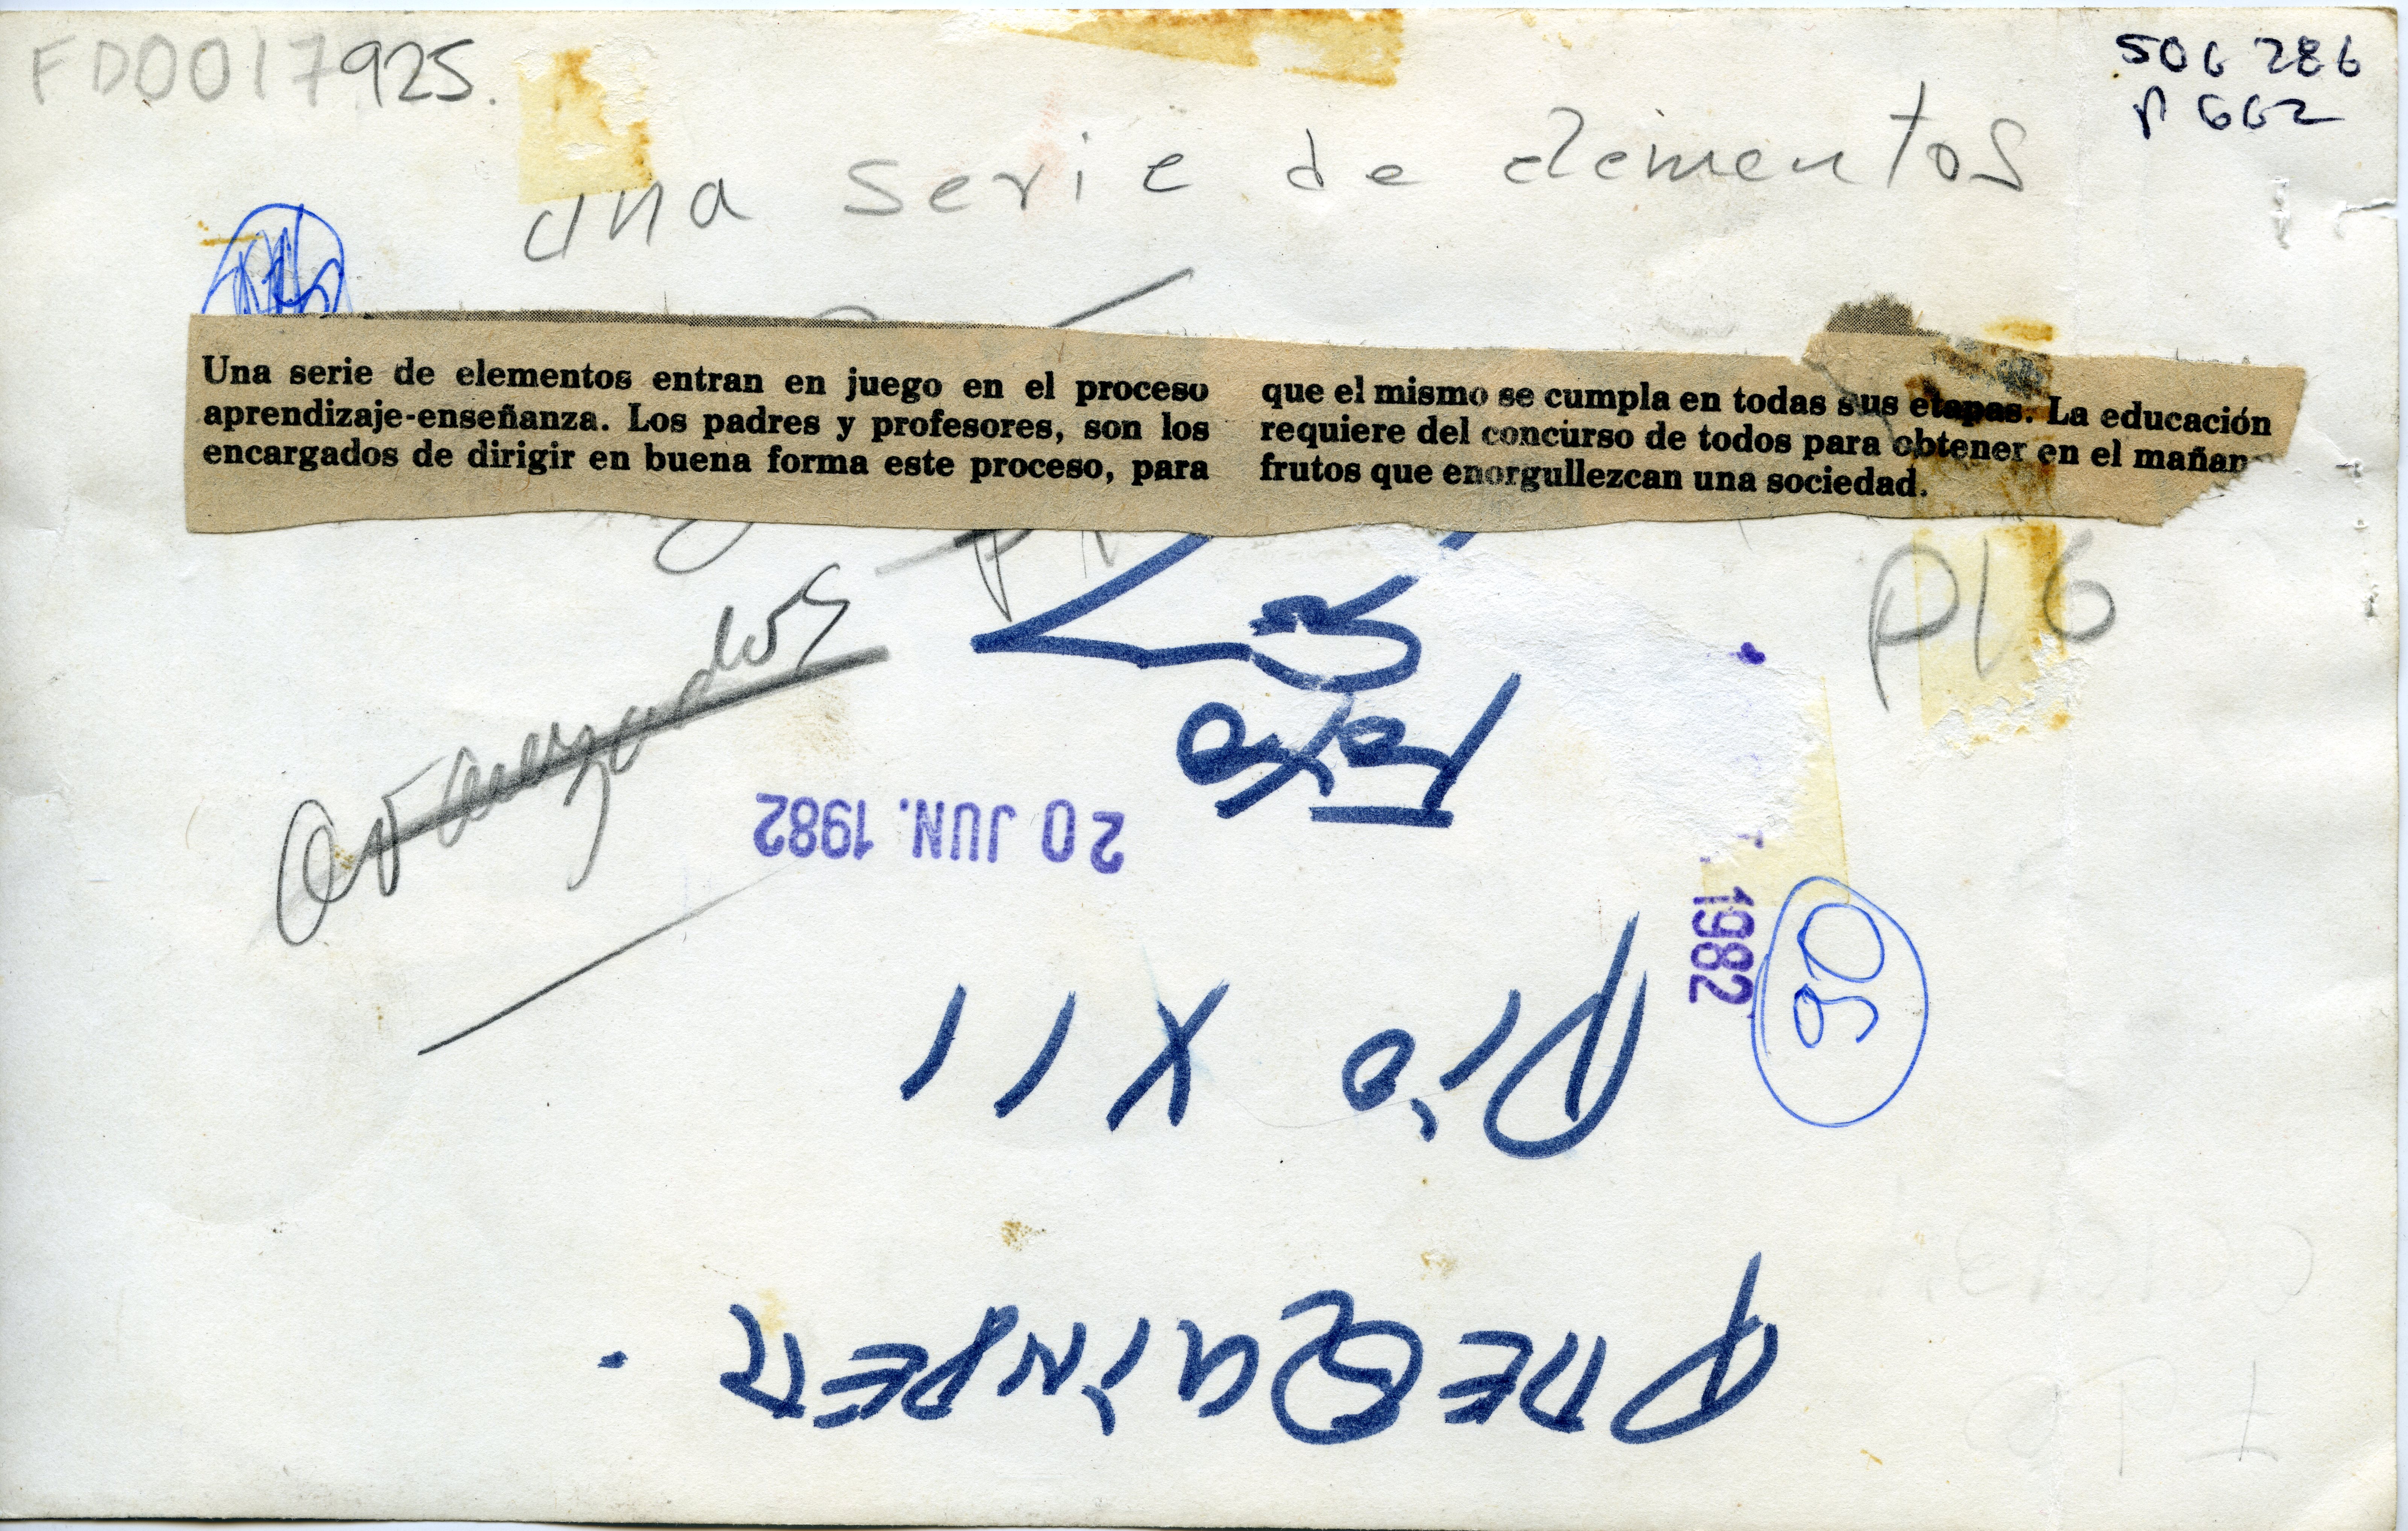 FD0017925.
506 286
P 662
una serie de elementos
Una serie de elementos entran en juego en el proceso
aprendizaje-enseñanza. Los padres y profesores, son los
encargados de dirigir en buena forma este proceso, para
que el mismo se cumpla en todas sus etapas. La educación
requiere del concurso de todos para obtener en el mañan
frutos que enorgullezcan una sociedad.
P16
Foto
20 JUN. 1982
1982
90
Pio XII